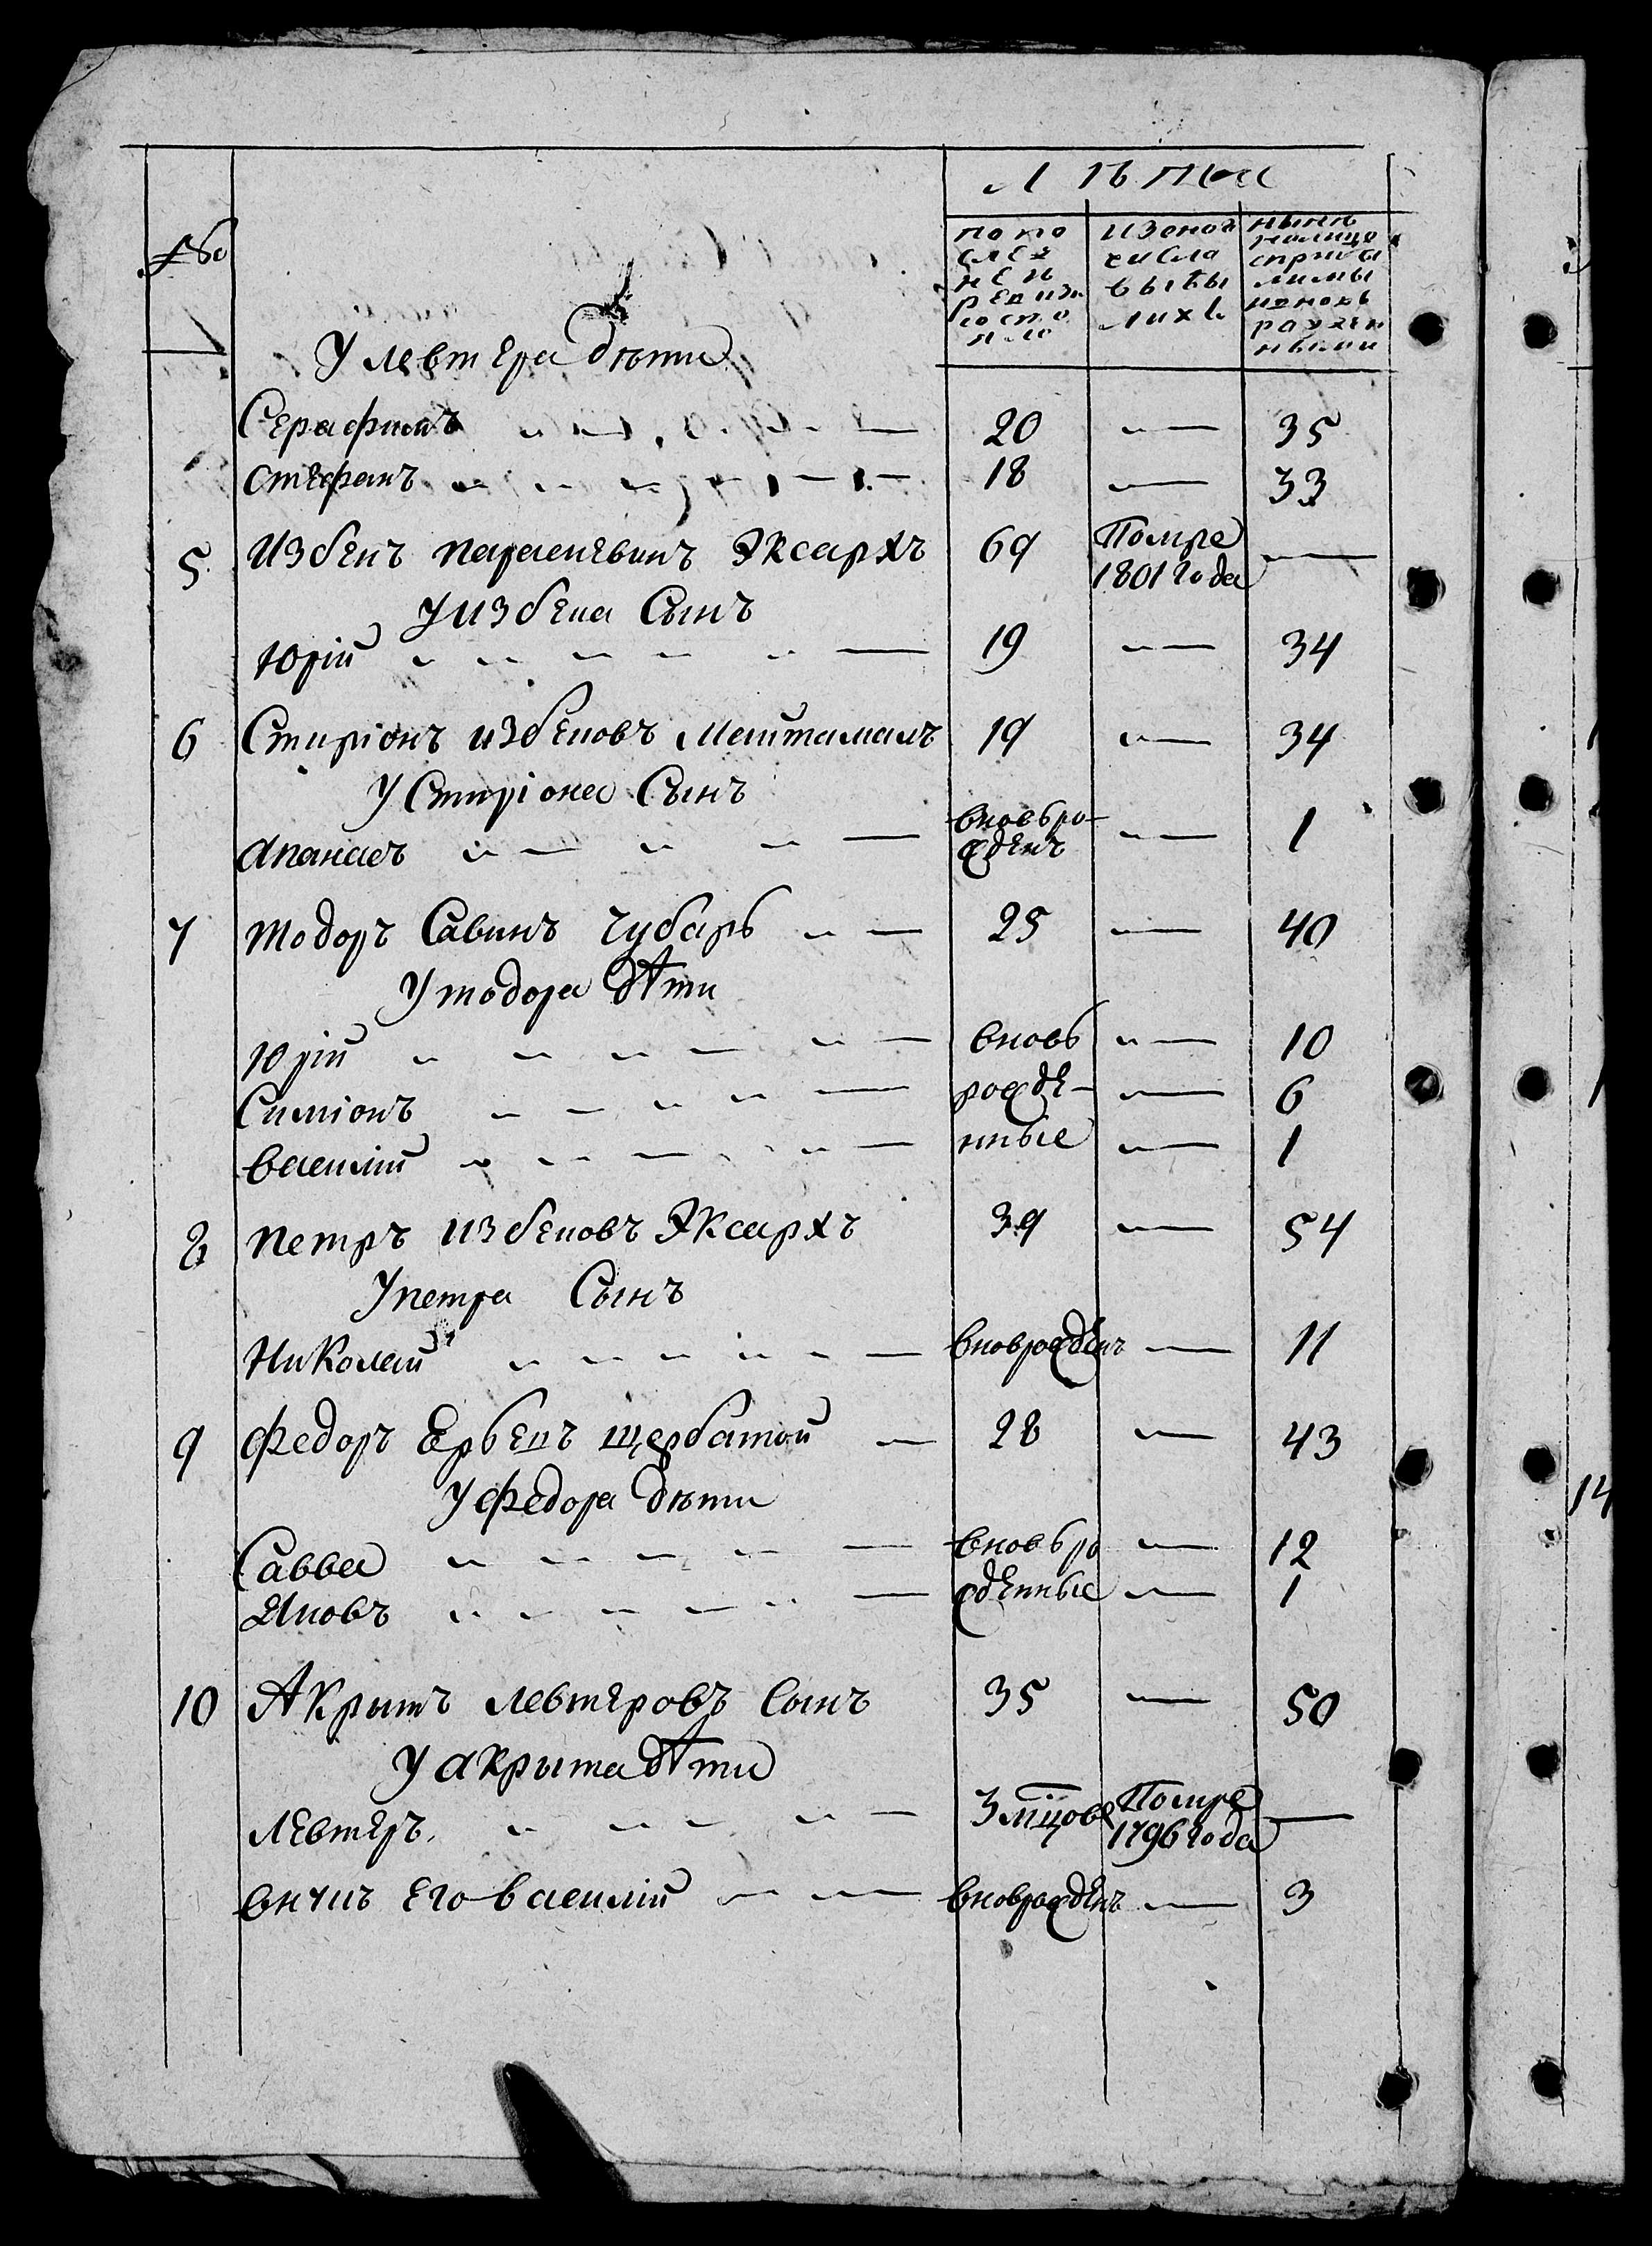 Лѣта
№
по по
след
ней
ревизи
состо
яло
из онаго
числа
выбы
лихъ
нынѣ
налицо
спрыбы
лыми
и новь
рожден
ными
У левтера дѣти
Серафимъ 20 — 35
Стефанъ 18 — 33
5 Избенъ Параскевинъ Эксархъ 69 Помре 1801 года —
У избена Сынъ
Юрій 19 — 34
6 Стиріонъ избеновъ 19 — 34
У Стиріона Сынъ
Апанасъ вновь рожденъ — 1
7 Тодоръ Савинъ Чубарь 25 — 40
У тодора дѣти
Юрій вновь — 10
Симіонъ рожде- — 6
Василій нные — 1
8 Петръ избеновъ Эксархъ 39 — 54
У петра Сынъ
Николай вновъ рожденъ — 11
9 Федоръ Щербатой 28 — 43
У федора дѣти
Савва вновь ро — 12
жденные — 1
10 Акрытъ левтеровъ Сынъ 35 — 50
У акрыта дѣти
Левтеръ 3 мцовъ Помре 1796 года —
его Василій вновъ рожденъ — 3
14